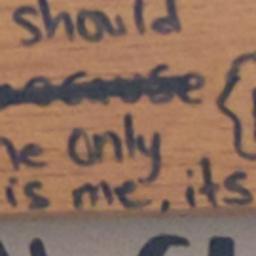 should
because
he only
is me, its